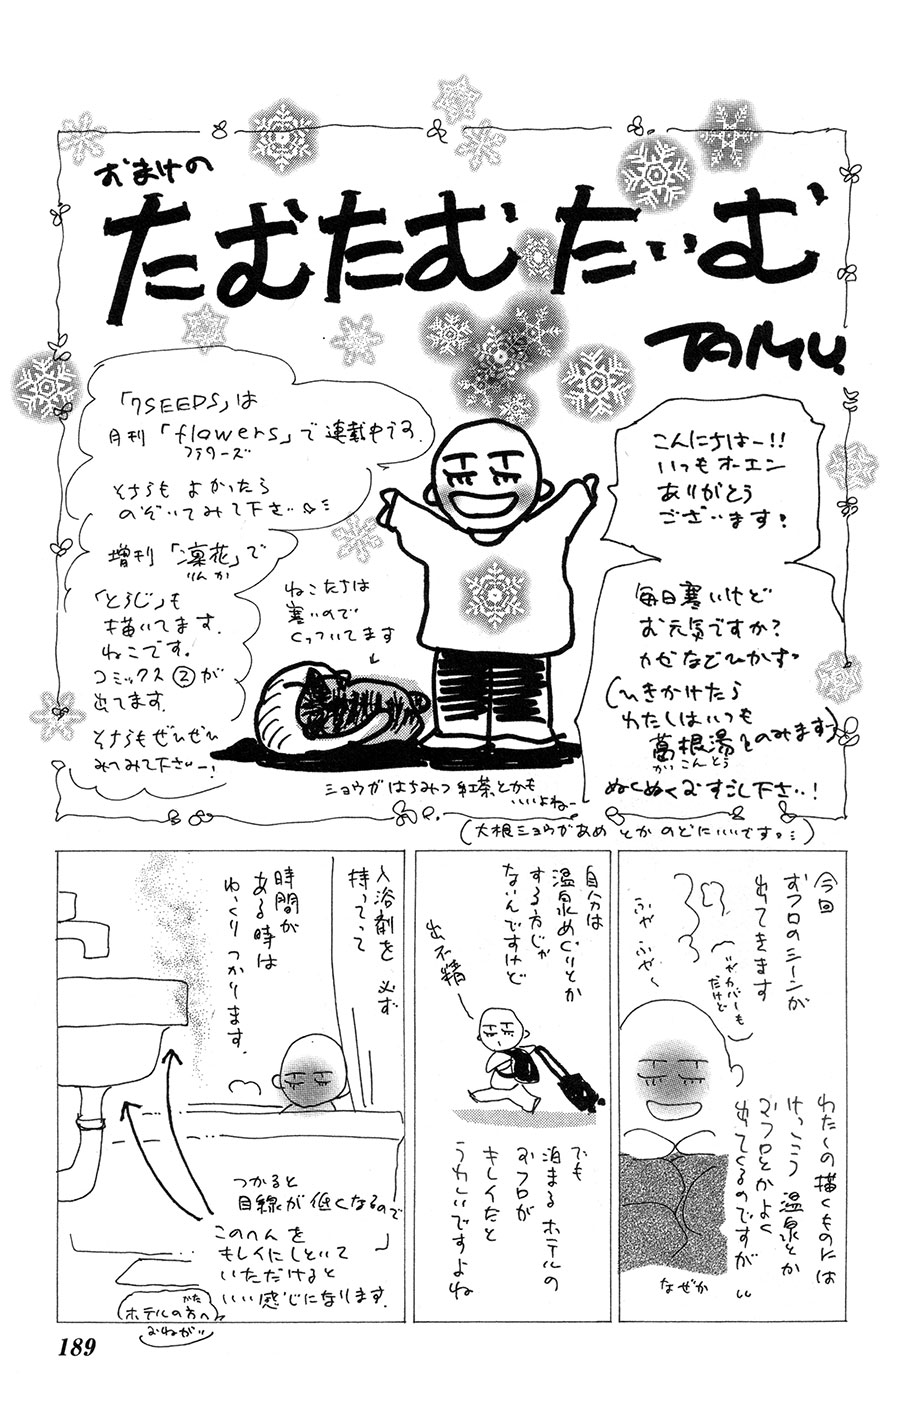 おまけの
たむたむたいむ
TAMU.
こんにちはー!!
いつもオーエン
ありがとう
ございます!
毎日寒いけど
お元気ですか?
カゼなどひかず
(ひきかけたら
わたしはいつも
葛根湯とのみます)
かっこんとう
ぬくぬくおすごし下さい!
「7SEEDS」は
月刊「flowers」で連載中です.
フラワーズ
そちらもよかったら
のぞいてみて下さい
増刊「凛花」で
りんか
「とらじ」も
描いてます.
ねこです.
コミックス②が
出てます.
そちらもぜひぜひ
みてみて下さいー!
ねこたちは
寒いので
くっついてます
ショウガはちみつ紅茶とかも
いいよねー
(大根ショウガあめとかのどにいいです)
今回
おフロのシーンが
出てきます
じゃカバーも
だけど
ふや ふや〜
わたしの描くものには
けっこう温泉とか
おフロとかよく
出てくるのですが
なぜか
自分は
温泉めぐりとか
する方じゃ
ないんですけど
出不精
でも
泊まるホテルの
おフロが
キレイだと
うれしいですよね
入浴剤を必ず
持ってって
時間が
ある時は
ゆっくりつかります.
つかると
目線が低くなるので
このへんを
キレイにしといて
いただけると
いい感じになります.
ホテルの方へ
がた
おねがい
189